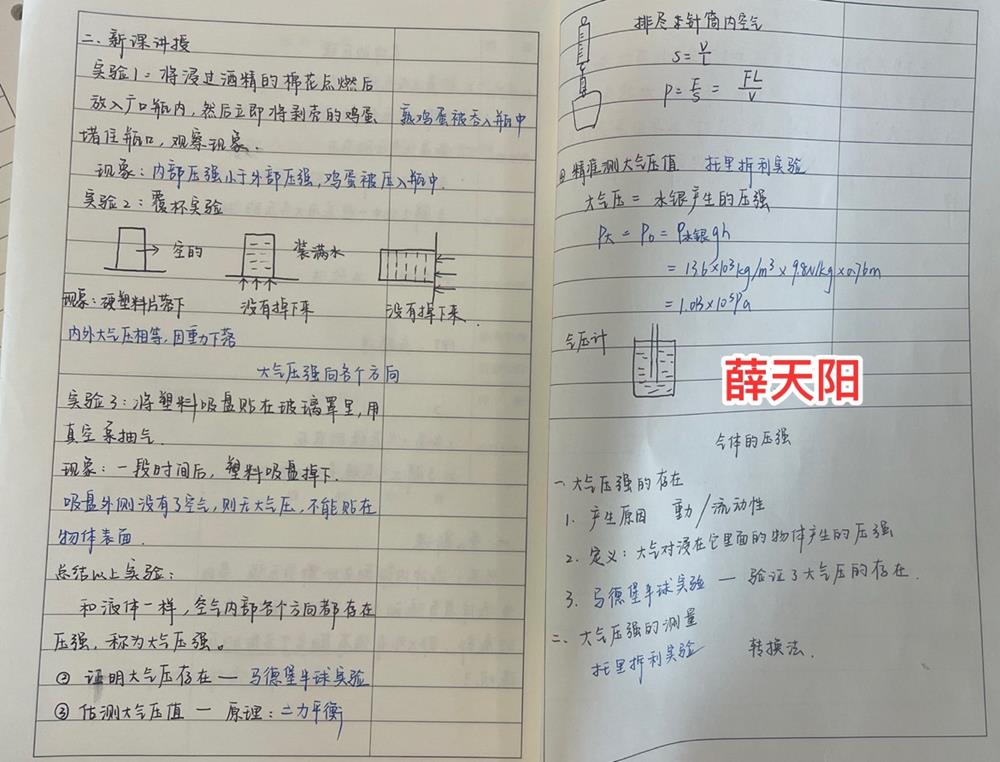 二、新课讲授
实验1：将浸过酒精的棉花点燃后
放入广口瓶内，然后立即将剥壳的鸡蛋
蒸鸡蛋被吞入瓶中
堵住瓶口，观察现象．
现象：内部压强小于外部压强，鸡蛋被压入瓶中．
实验2：覆杯实验
空的 装满水
现象：硬塑料片落下 没有掉下来 没有掉下来．
内外大气压相等，因重力下落
大气压强向各个方向
实验3：将塑料吸盘贴在玻璃罩里，用
真空泵抽气．
现象：一段时间后，塑料吸盘掉下．
吸盘外侧没有了空气，则无大气压，不能贴在
物体表面．
总结以上实验：
和液体一样，空气内部各个方向都存在
压强，称为大气压强。
② 证明大气压存在 — 马德堡半球实验
③ 估测大气压值 — 原理：二力平衡
排尽针筒内空气
S=V/L
P=F/S=FL/V
精准测大气压值 托里拆利实验
大气压＝水银产生的压强
P大＝P0＝P水银gh
＝13.6×10³kg/m³×9.8N/kg×0.76m
＝1.013×10⁵Pa
气压计
薛天阳
气体的压强
一、大气压强的存在
1. 产生原因 重力/流动性
2. 定义：大气对浸在它里面的物体产生的压强
3. 马德堡半球实验 — 验证了大气压的存在．
二、大气压强的测量
托里拆利实验 转换法．